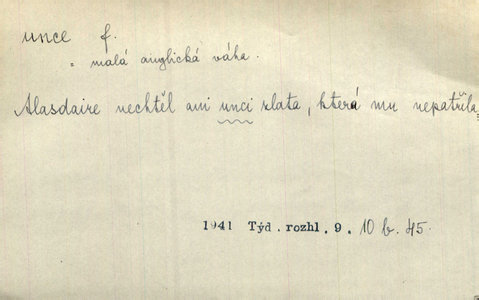 unce f.
= malá anglická váha.
Alasdaire nechtěl ani unci zlata, která mu nepatřila
1941 Týd. rozhl. 9. 10 b. 45.